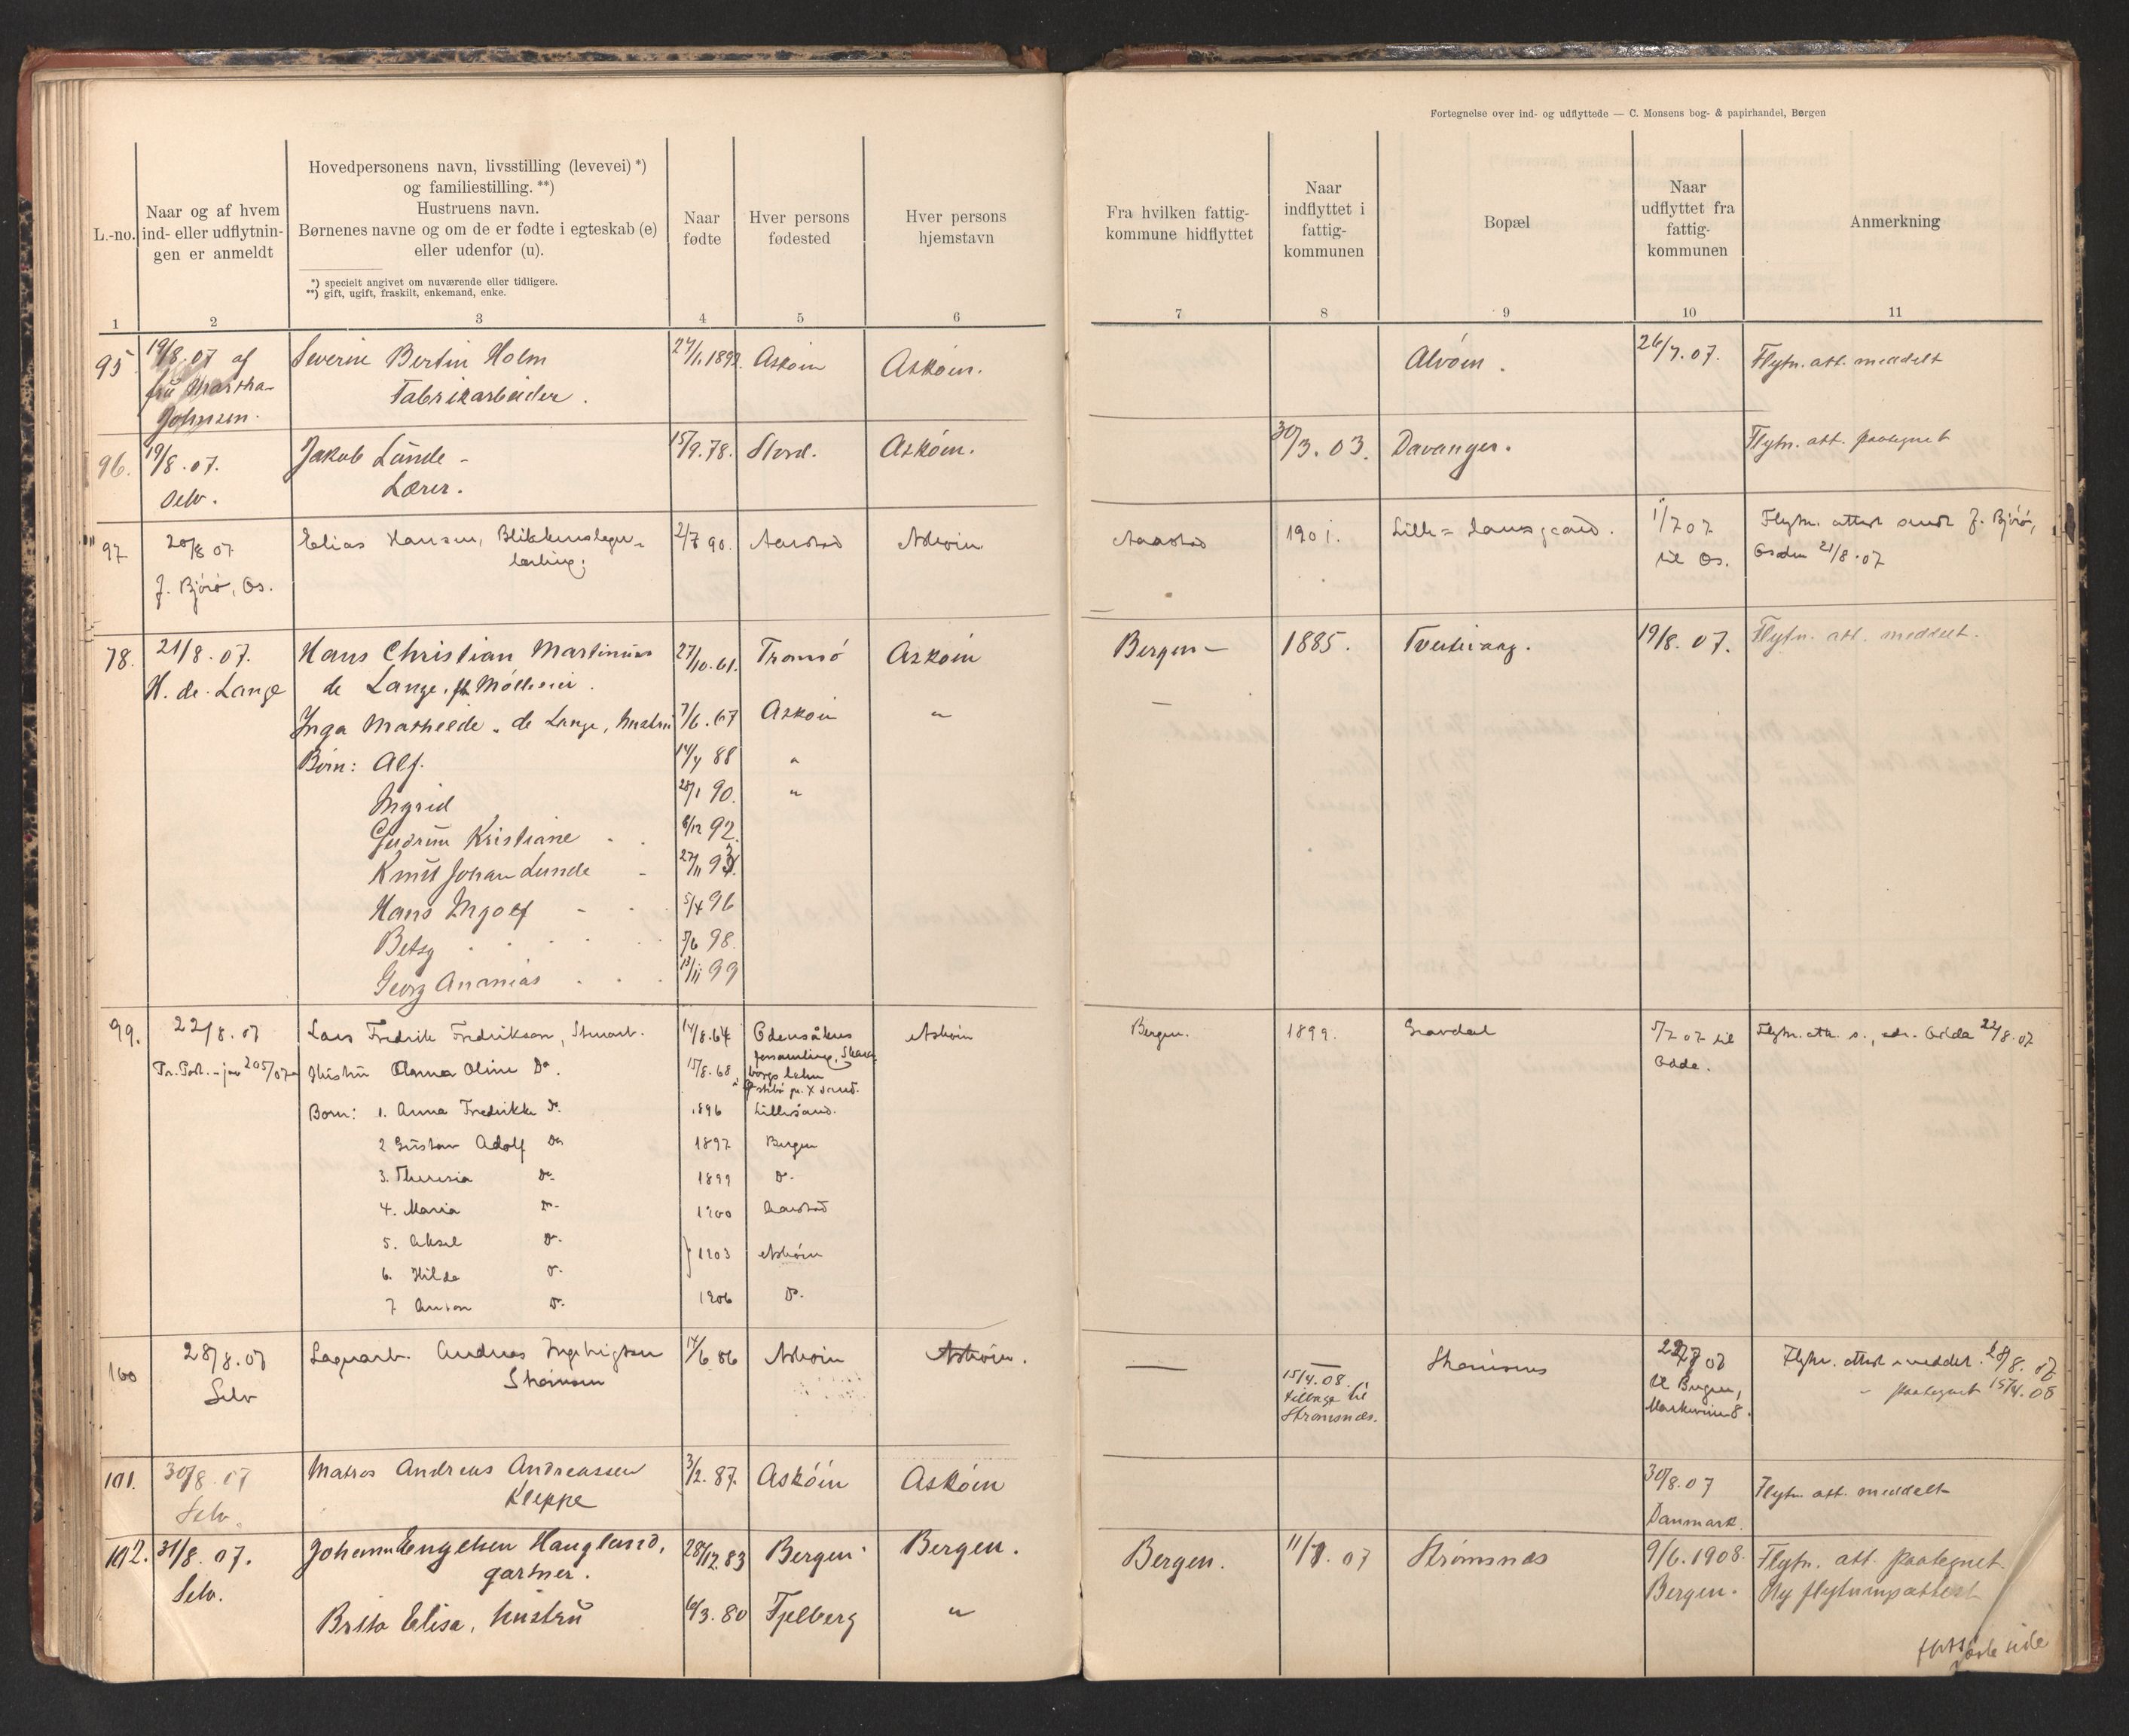 Fortegnelse over ind- og udflyttede — C. Monsens bog- & papirhandel, Bergen
L.-no.
Naar og af hvem
ind- eller udflytnin-
gen er anmeldt
Hovedpersonens navn, livsstilling (levevei) *)
og familiestilling. **)
Hustruens navn.
Børnenes navne og om de er fødte i egteskab (e)
eller udenfor (u).
*) specielt angivet om nuværende eller tidligere.
**) gift, ugift, fraskilt, enkemand, enke.
Naar
fødte
Hver persons
fødested
Hver persons
hjemstavn
Fra hvilken fattig-
kommune hidflyttet
Naar
indflyttet i
fattig-
kommunen
Bopæl
Naar
udflyttet fra
fattig-
kommunen
Anmerkning
1 2 3 4 5 6 7 8 9 10 11
95. 19/8.07 af Severin Bertin Holm Askøin Askøin. Alvøen. 26/7.07. Flytn. att. meddelt
fru Martha Fabrikarbeider.
Johnsen.
96. 19/8.07. Jakob Lunde - 15/9.78. Stord. Askøin. 30/3.03. Davanger. Flytn. att. paategnet
Selv. Lærer.
97 20/8 07 Elias Hansen, Blikkenslager- 2/7 90. Aarstad Askøin Aarstad 1901. Lille= 1/7 07 Flytn. attest sendt J. Bjørø,
J. Bjørø, Os. lærling; til Os. Osøren 21/8.07
78. 21/8.07. Hans Christian Martinus 27/10.61. Tromsø Askøin Bergen - 1885. Tveiteraag. 19/8.07. Flytn. att. meddelt.
H. de Lange de Lange,
Inga Mathilde de Lange, hustru 7/6.67 Askøin "
Børn: Alf. 88 "
Ingrid 28/1 90. "
Gudrun Kristiane 6/12 92.
Knut Johan Lunde 27/11
Hans Ingolf 5/4 96
Betsy 5/6 98.
Georg Ananias 13/11 99
99. 22/8.07 Lars Fredrik Fredriksen, 14/8.64 Odensåkers Askøin Bergen. 1899. Gravdal 5/7 07 til Flytn. att. s., adr. Odda 22/8.07
Hustru Anna Oline Do. 15/8.68 forsamling, Skara- Odda.
borgs
Børn: 1. Anna Fredrikke Do. 1896 Lillesand.
2 Gustav Adolf Do. 1897 Bergen
3. Theresia Do. 1899 Do.
4. Maria Do. 1900 Aarstad
5. Aksel Do. } 1903 Askøin
6. Hilda Do.
7 Anton Do. 1906 Do.
100 28/8.07 Lagerarb. Andreas Ingebrigtsen 14/6 86 Askøin Askøin. — — Strømsnes 07 Flytn. attest meddelt. 28/8.07
Selv 15/4.08. til Bergen, " paategnet 15/4.08
tilbage til Markeveien 8.
Strømsnæs.
101. 30/8.07 Matros Andreas Andreassen 3/2.87. Askøin Askøin 30/8.07 Flytn. att. meddelt
Selv. Kleppe Danmark.
102. 31/8.07. Johan Engelsen Haugland, 28/12 83 Bergen Bergen. Bergen. 07 Strømsnæs 9/6.1908. Flytn. att. paategnet.
Selv. gartner. Bergen. Ny flytningsattest
Brita Elisa, hustru 3.80 Fjelberg "
næste side